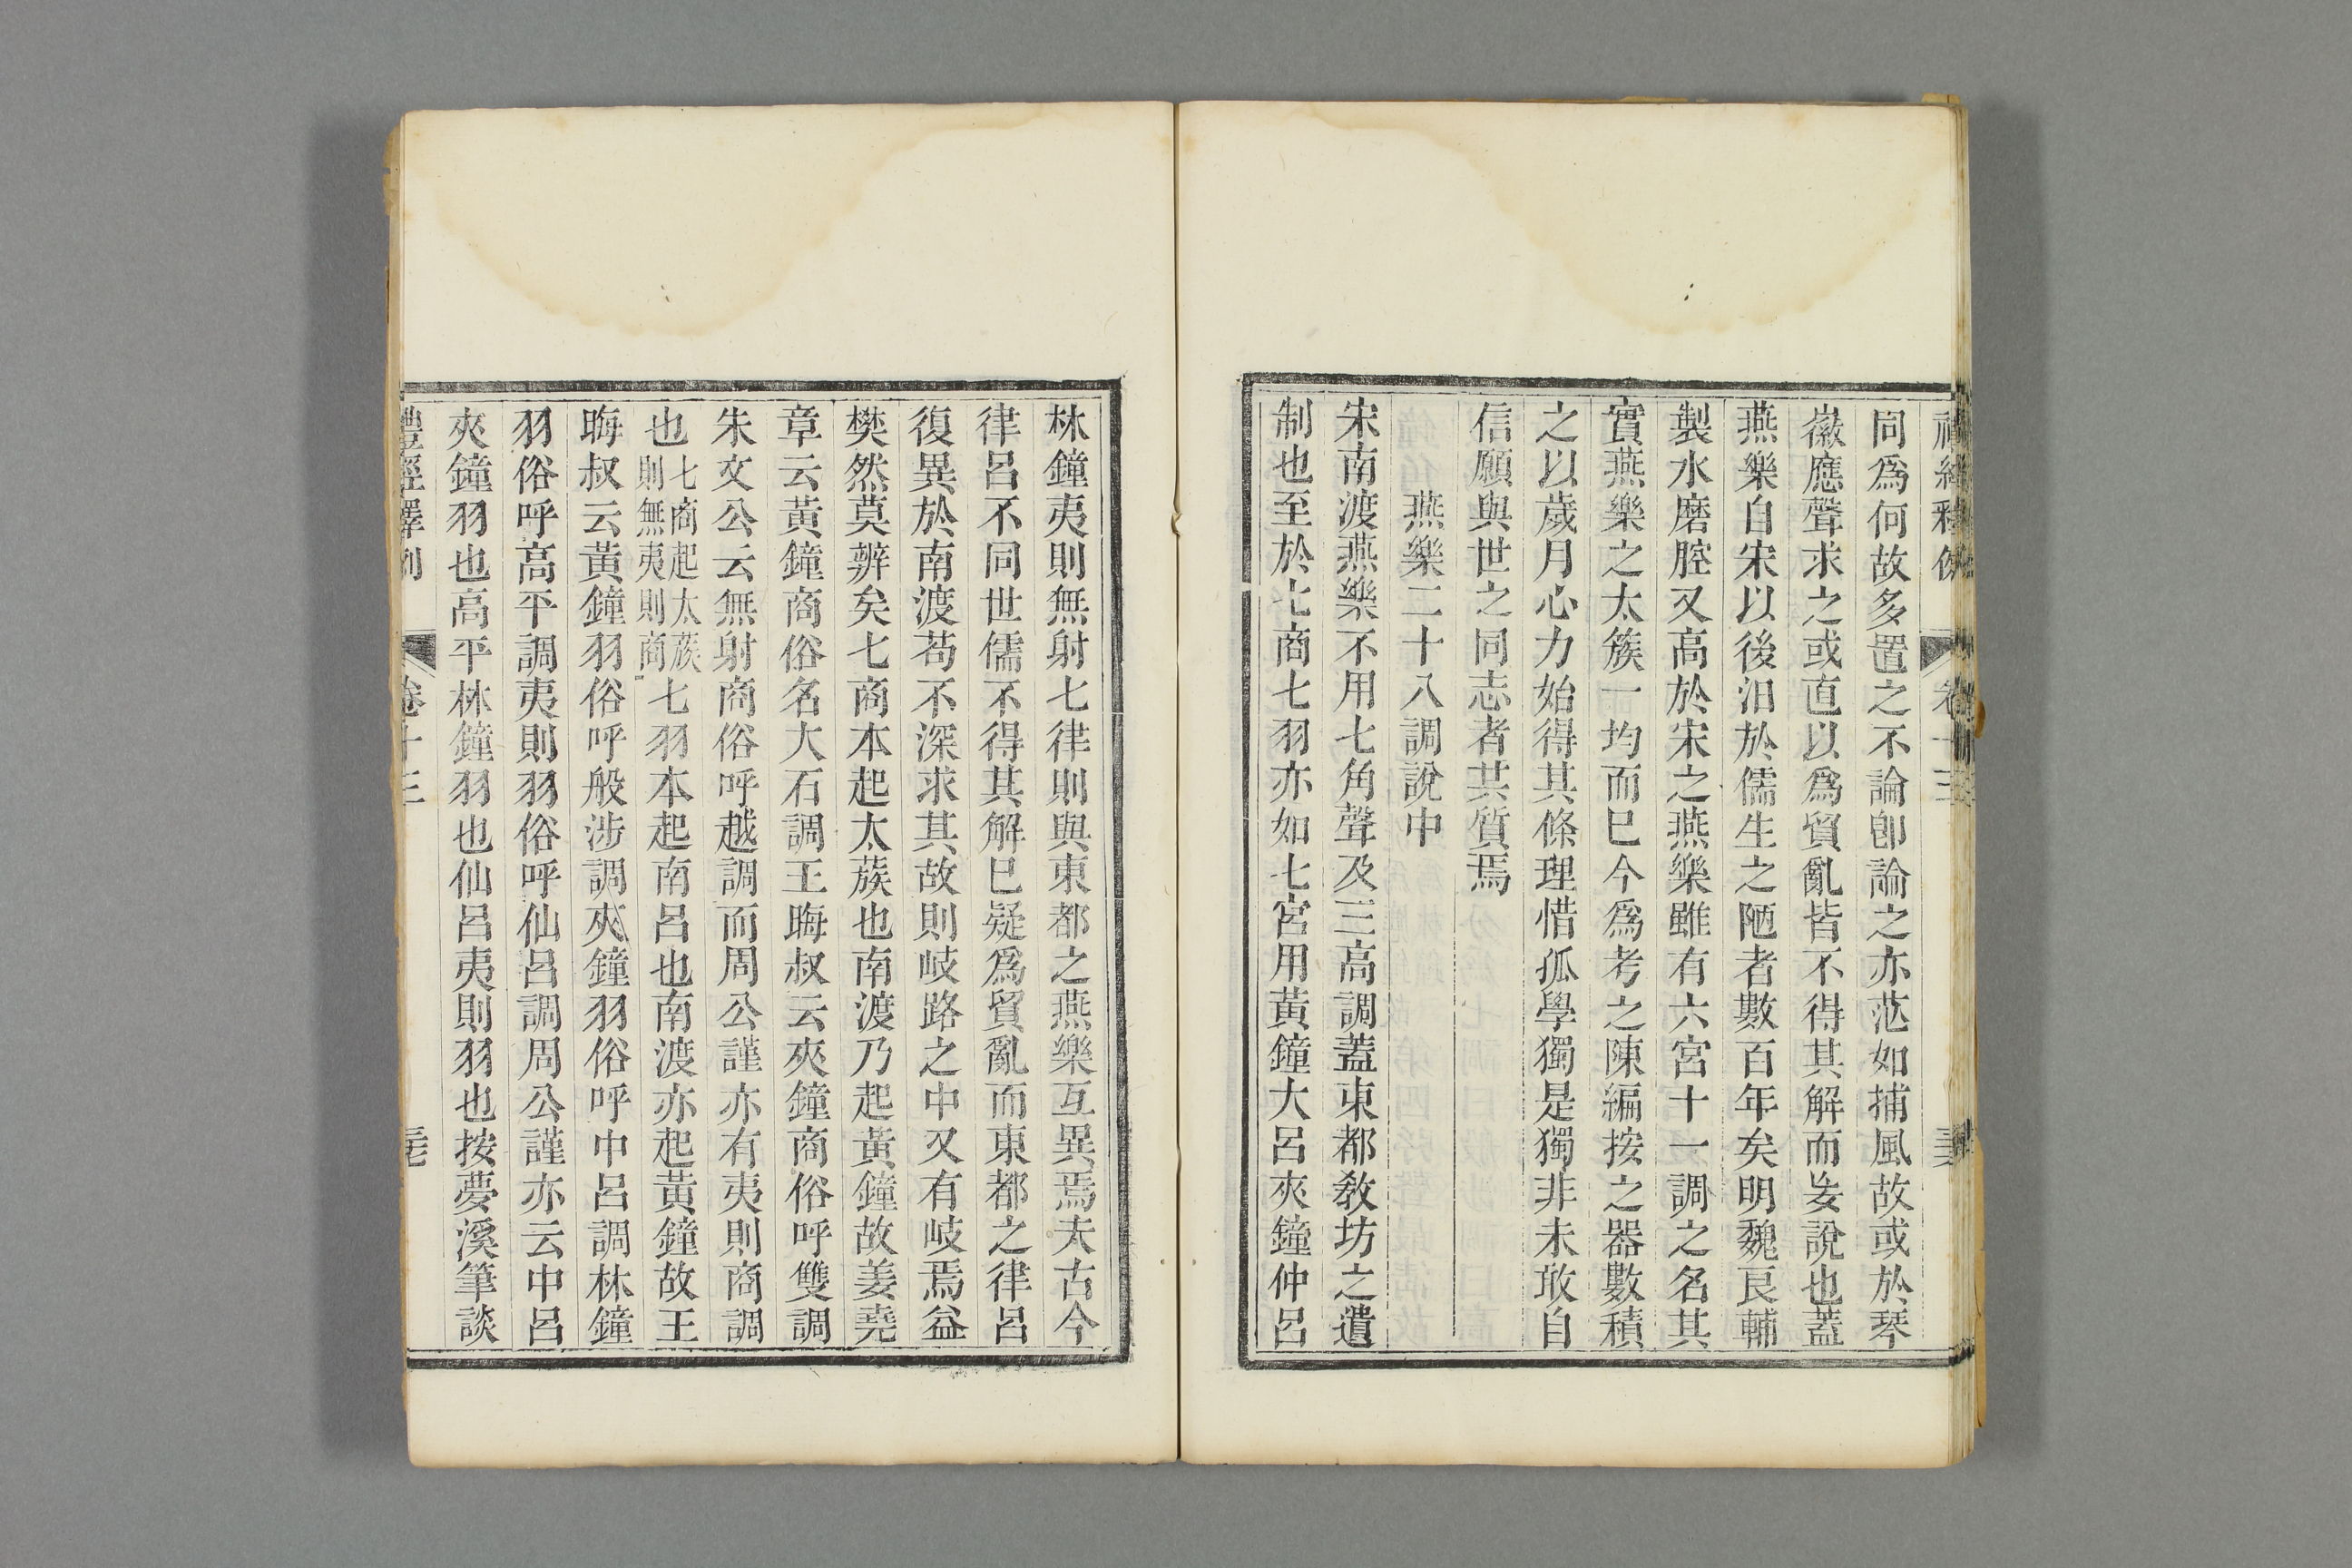 同爲何故多置之不論卽論之亦茫如捕風故或於琴
徽應聲求之或直以爲貿亂皆不得其解而妄說也蓋
燕樂自宋以後汨於儒生之陋者數百年矣明魏良輔
製水磨腔又高於宋之燕樂雖有六宮十一調之名其
實燕樂之太簇一均而已今爲考之陳編按之器數積
之以歲月心力始得其條理惜孤學獨是獨非未敢自
信願與世之同志者共質焉
燕樂二十八調說中
宋南渡燕樂不用七角聲及三高調蓋東都敎坊之遺
制也至於七商七羽亦如七宮用黃鐘大呂夾鐘仲呂
林鐘夷則無射七律則與東都之燕樂互異焉夫古今
律呂不同世儒不得其解已疑爲貿亂而東都之律呂
復異於南渡苟不深求其故則岐路之中又有岐焉益
樊然莫辨矣七商本起太蔟也南渡乃起黃鐘故姜堯
章云黃鐘商俗名大石調王晦叔云夾鐘商俗呼雙調
朱文公云無射商俗呼越調而周公謹亦有夷則商調
也七商起太蔟則無夷則商七羽本起南呂也南渡亦起黃鐘故王
晦叔云黃鐘羽俗呼般涉調夾鐘羽俗呼中呂調林鐘
羽俗呼高平調夷則羽俗呼仙呂調周公謹亦云中呂
夾鐘羽也高平林鐘羽也仙呂夷則羽也按夢溪筆談
禮經釋例 卷十三